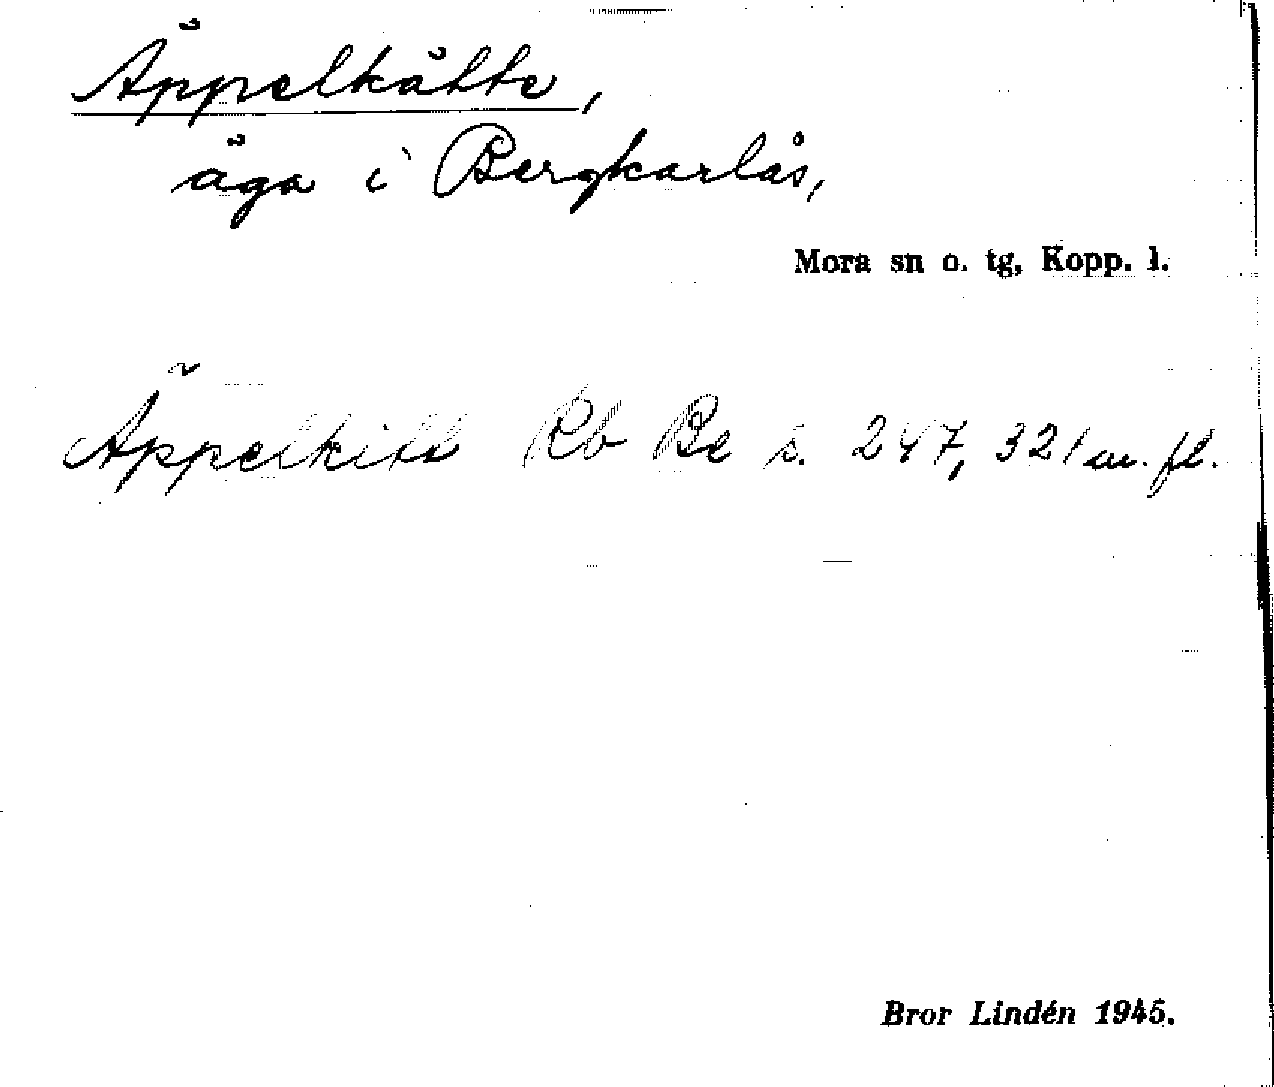 Äppelkätte,
äga i Bergkarlås,
Mora sn o. tg, Kopp. l.
Äppelkitt Rb Be s. 247, 321 m. fl.
Bror Lindén 1945.